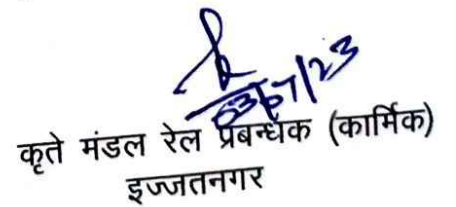 03/07/23
कृते मंडल रेल प्रबन्धक (कार्मिक)
इज्जतनगर